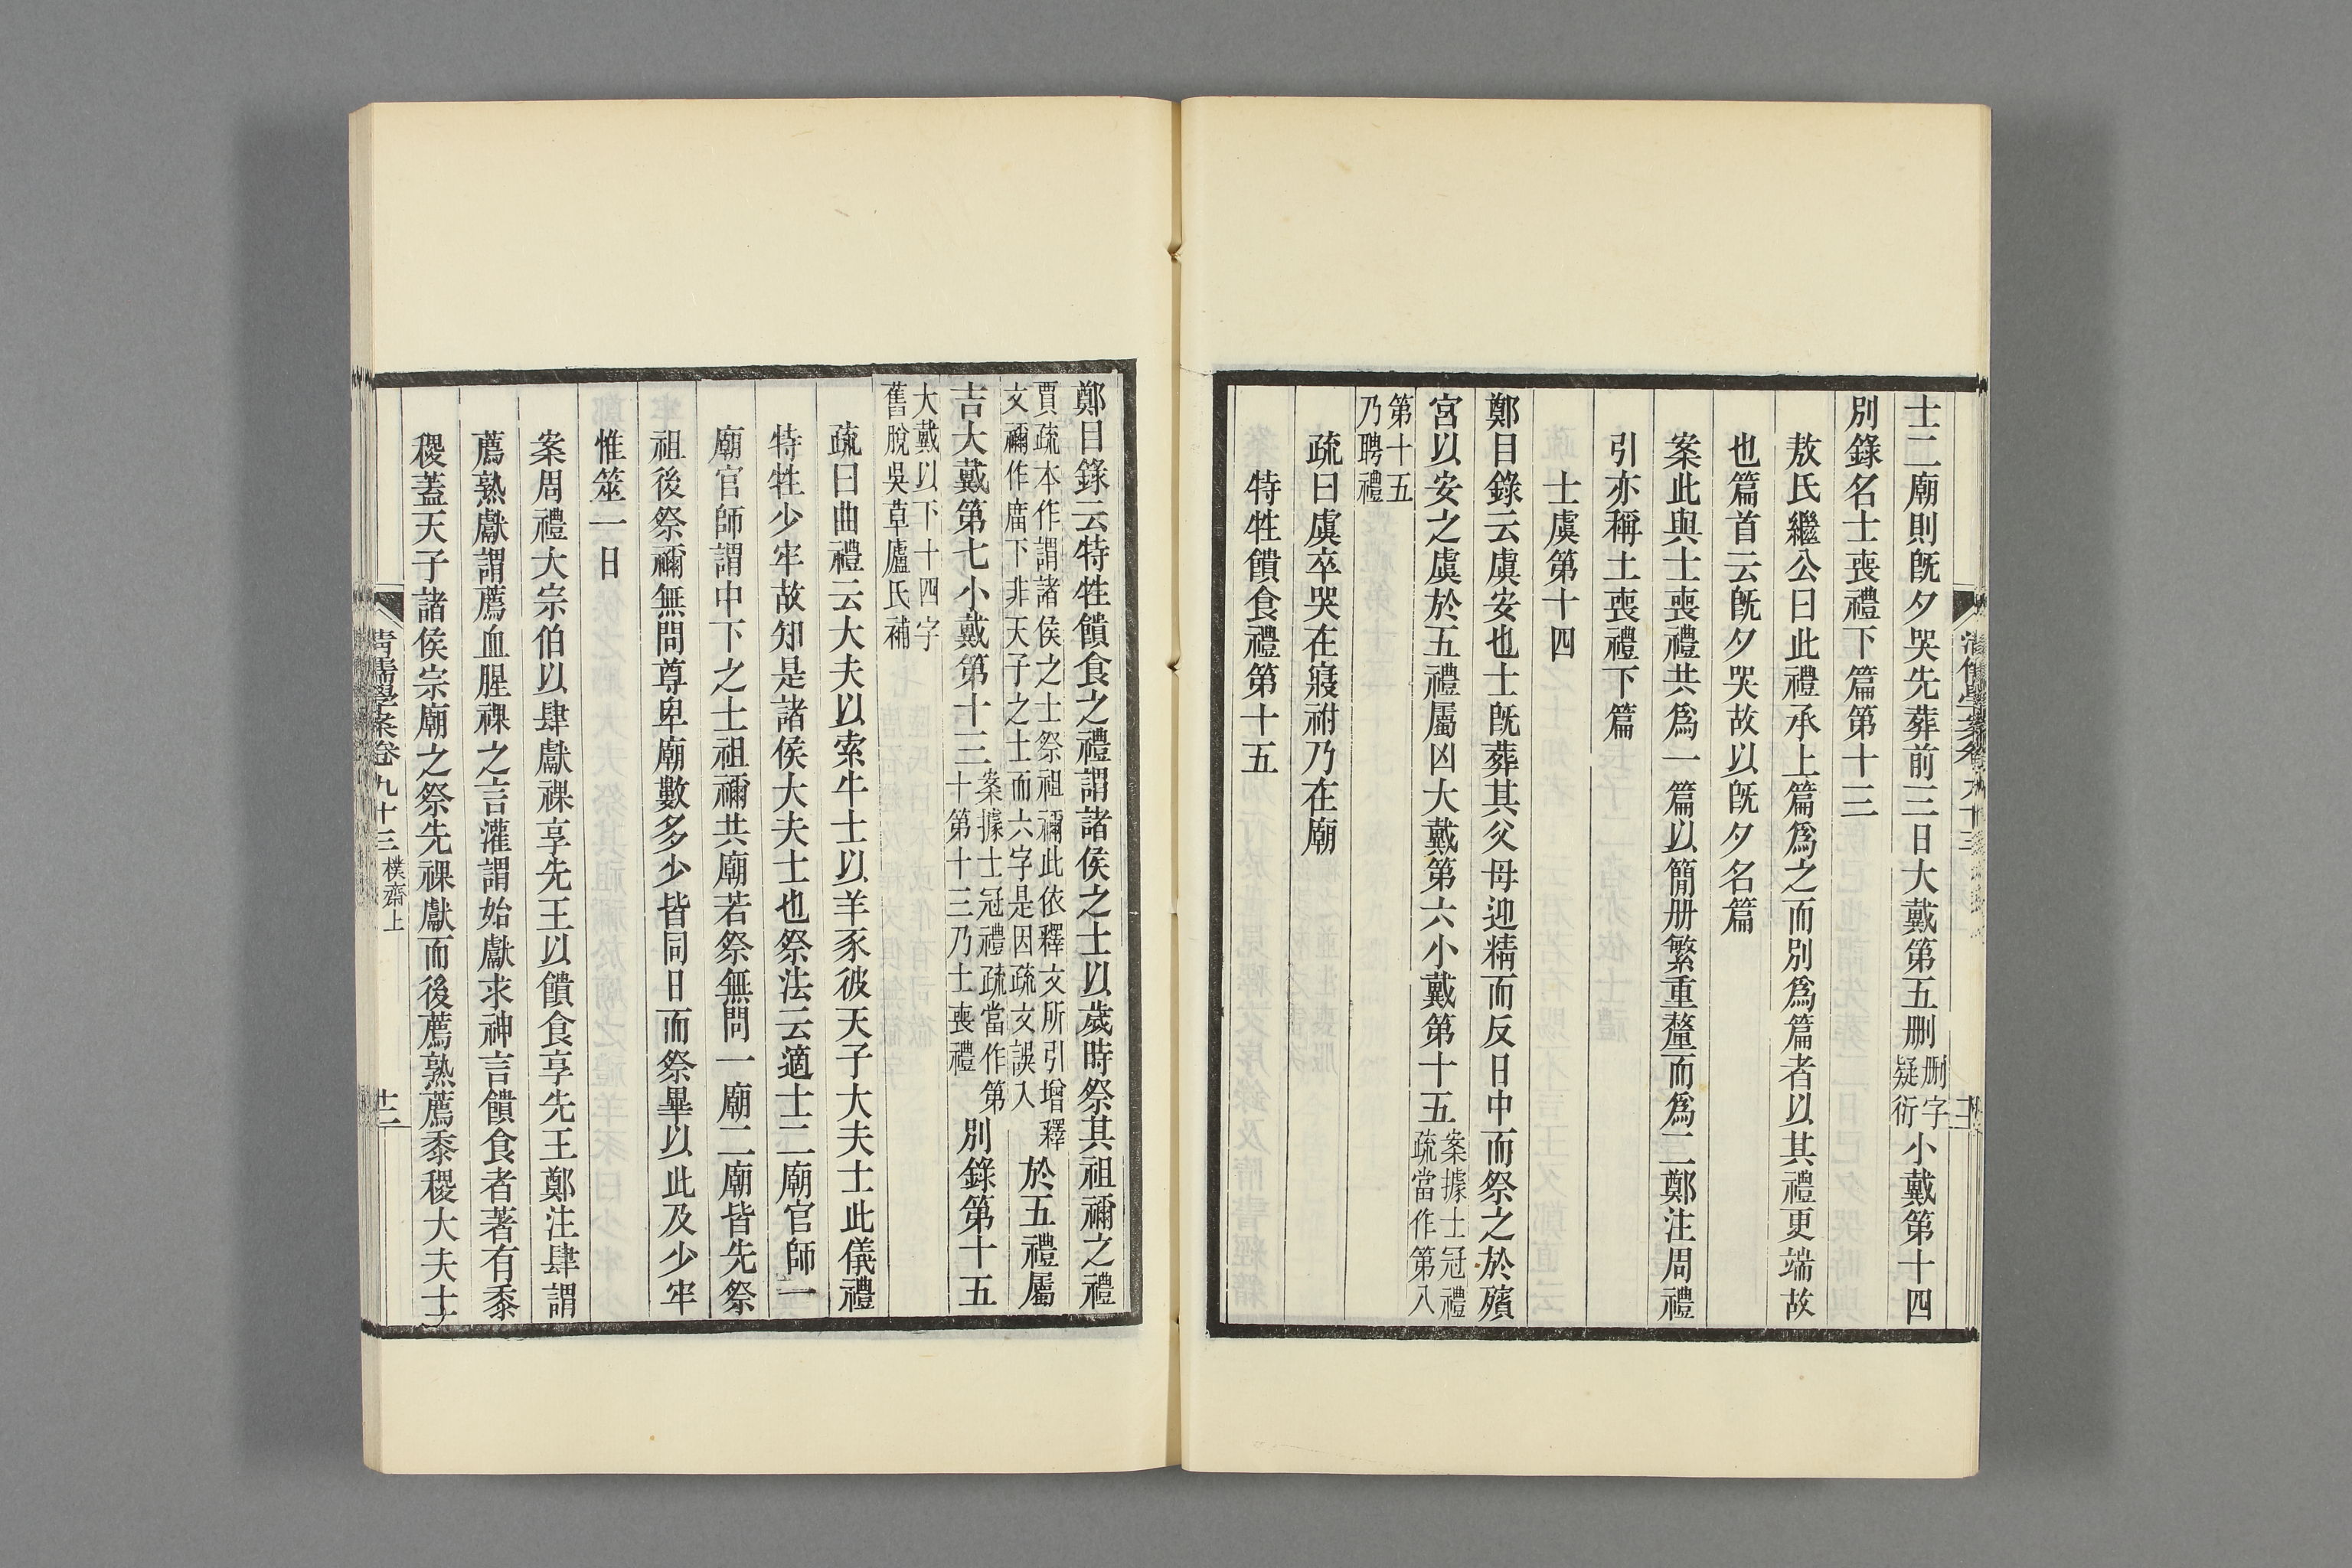 士二廟則旣夕哭先葬前三日大戴第五删删字疑衍小戴第十四
別錄名士喪禮下篇第十三
敖氏繼公曰此禮承上篇爲之而別爲篇者以其禮更端故
也篇首云旣夕哭故以旣夕名篇
案此與士喪禮共爲一篇以簡册繁重釐而爲二鄭注周禮
引亦稱士喪禮下篇
士虞第十四
鄭目錄云虞安也士旣葬其父母迎精而反日中而祭之於殯
宮以安之虞於五禮屬凶大戴第六小戴第十五案據士冠禮疏當作第八
第十五乃聘禮
疏曰虞卒哭在寢祔乃在廟
特牲饋食禮第十五
鄭目錄云特牲饋食之禮謂諸侯之士以歲時祭其祖禰之禮
賈疏本作謂諸侯之士祭祖禰此依釋文所引增釋文禰作庿下非天子之士而六字是因疏文誤入於五禮屬
吉大戴第七小戴第十三案據士冠禮疏當作第十第十三乃士喪禮別錄第十五
大戴以下十四字舊脫吳草廬氏補
疏曰曲禮云大夫以索牛士以羊豕彼天子大夫士此儀禮
特牲少牢故知是諸侯大夫士也祭法云適士二廟官師一
廟官師謂中下之士祖禰共廟若祭無問一廟二廟皆先祭
祖後祭禰無問尊卑廟數多少皆同日而祭畢以此及少牢
惟筮一日
案周禮大宗伯以肆獻祼享先王以饋食享先王鄭注肆謂
薦熟獻謂薦血腥祼之言灌謂始獻求神言饋食者著有黍
稷蓋天子諸侯宗廟之祭先祼獻而後薦熟薦黍稷大夫士
清儒學案卷九十三 樸齋上
十二